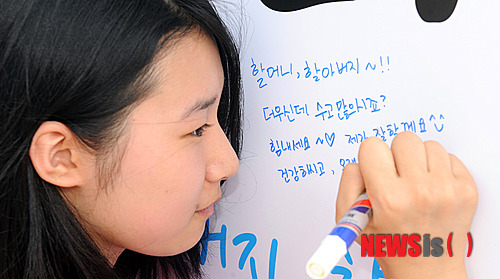 할머니, 할아버지~!!
더우신데 수고많으시죠?
힘내세요~♡ 제가 잘할께요^^
건강하시고,
NEWSis( )